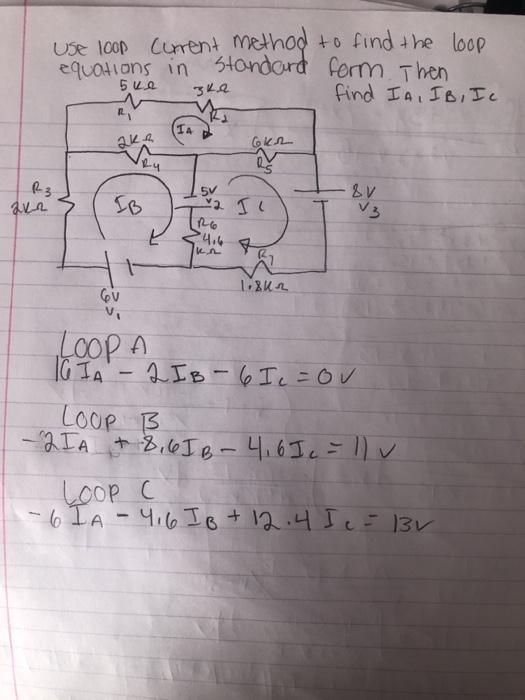 Use loop Current Method to find the loop
equations in Standard form. Then
find IA, IB, IC
5KΩ 3KΩ
R1 R2
IA
2KΩ 6KΩ
R4 R5
R3
2KΩ
IB
5V
V2
IC
8V
V3
R6
4.6
KΩ
R7
1.8KΩ
6V
V1
LOOP A
16IA - 2IB - 6IC = 0V
LOOP B
-2IA + 8.6IB - 4.6IC = 11V
LOOP C
-6IA - 4.6IB + 12.4IC = 13V